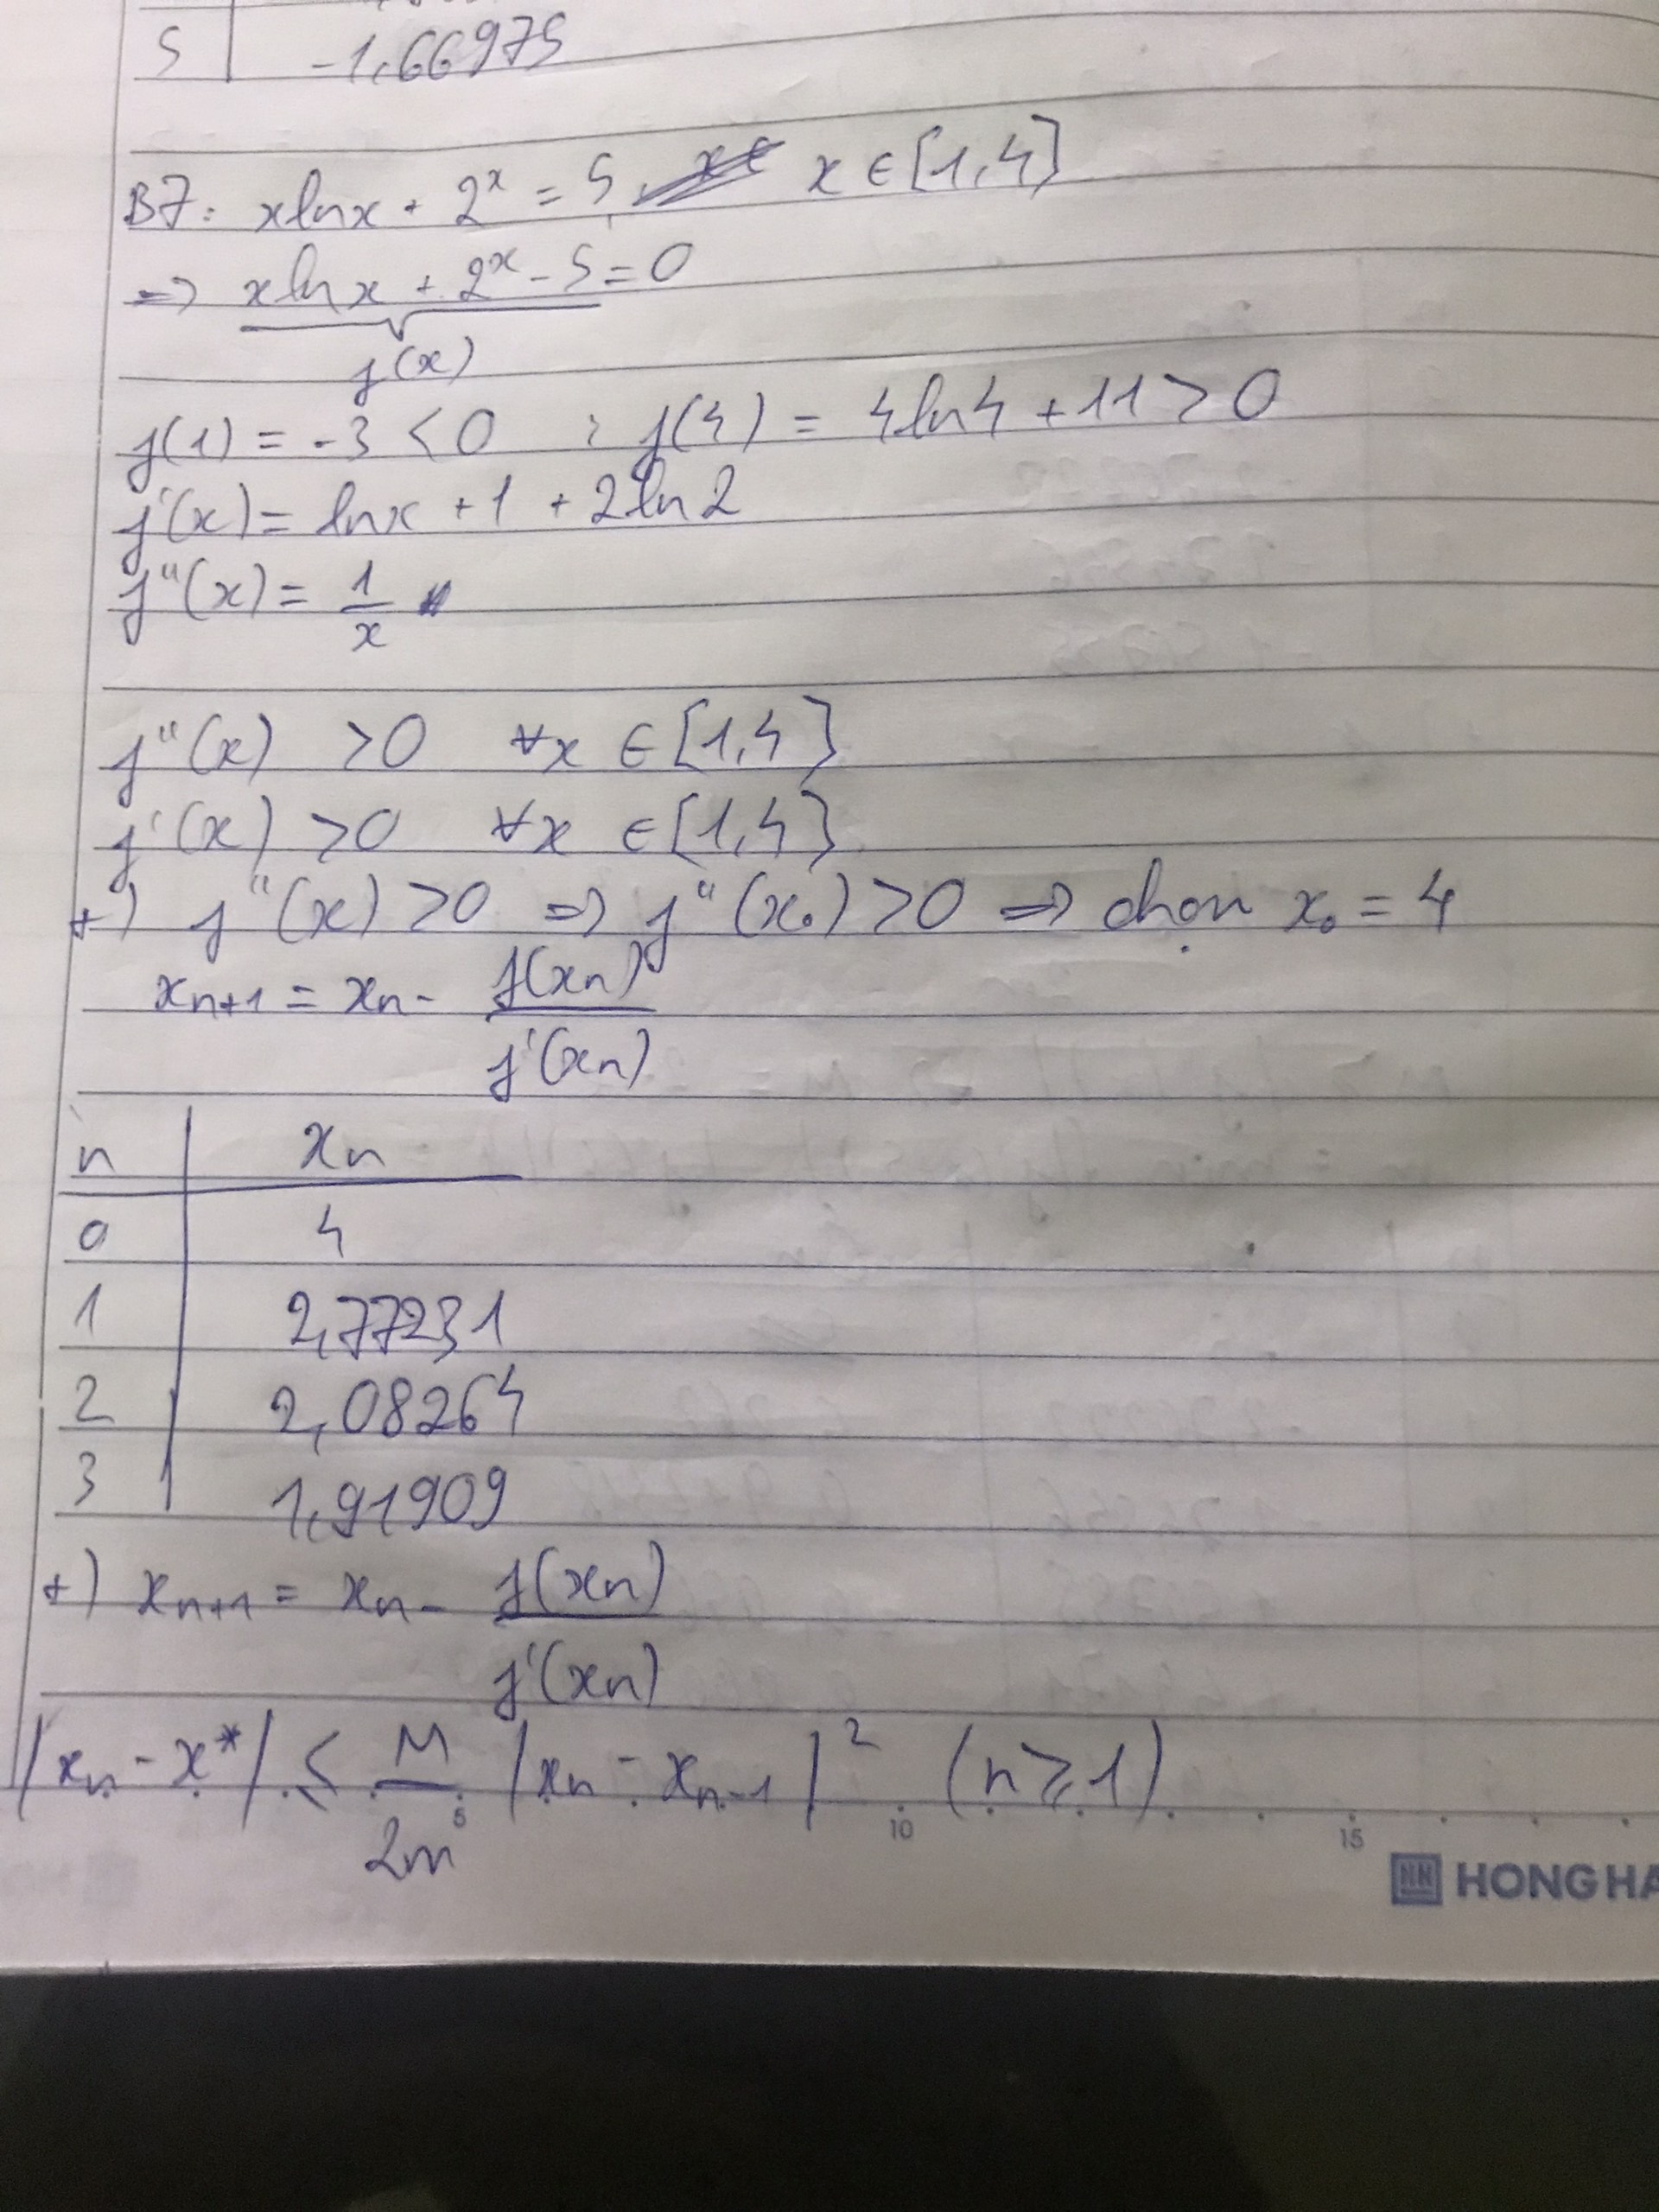 5 | -1,66975
B7: xlnx + 2^x = 5, x ∈ [1,4]
=> xlnx + 2^x - 5 = 0
f(x)
f(1) = -3 < 0 ; f(4) = 4ln4 + 11 > 0
f'(x) = lnx + 1 + 2ln2
f"(x) = 1/x
f"(x) > 0 ∀x ∈ [1,4]
f'(x) > 0 ∀x ∈ [1,4]
+) f"(x) > 0 => f"(x₀) > 0 => chọn x₀ = 4
xn+1 = xn - f(xn)/f'(xn)
n | xn
0 | 4
1 | 2,77231
2 | 2,08264
3 | 1,91909
+) xn+1 = xn - f(xn)/f'(xn)
|xn - x*| ≤ M/2m |xn - xn-1|² (n ≥ 1)
5 10 15
HONG HA